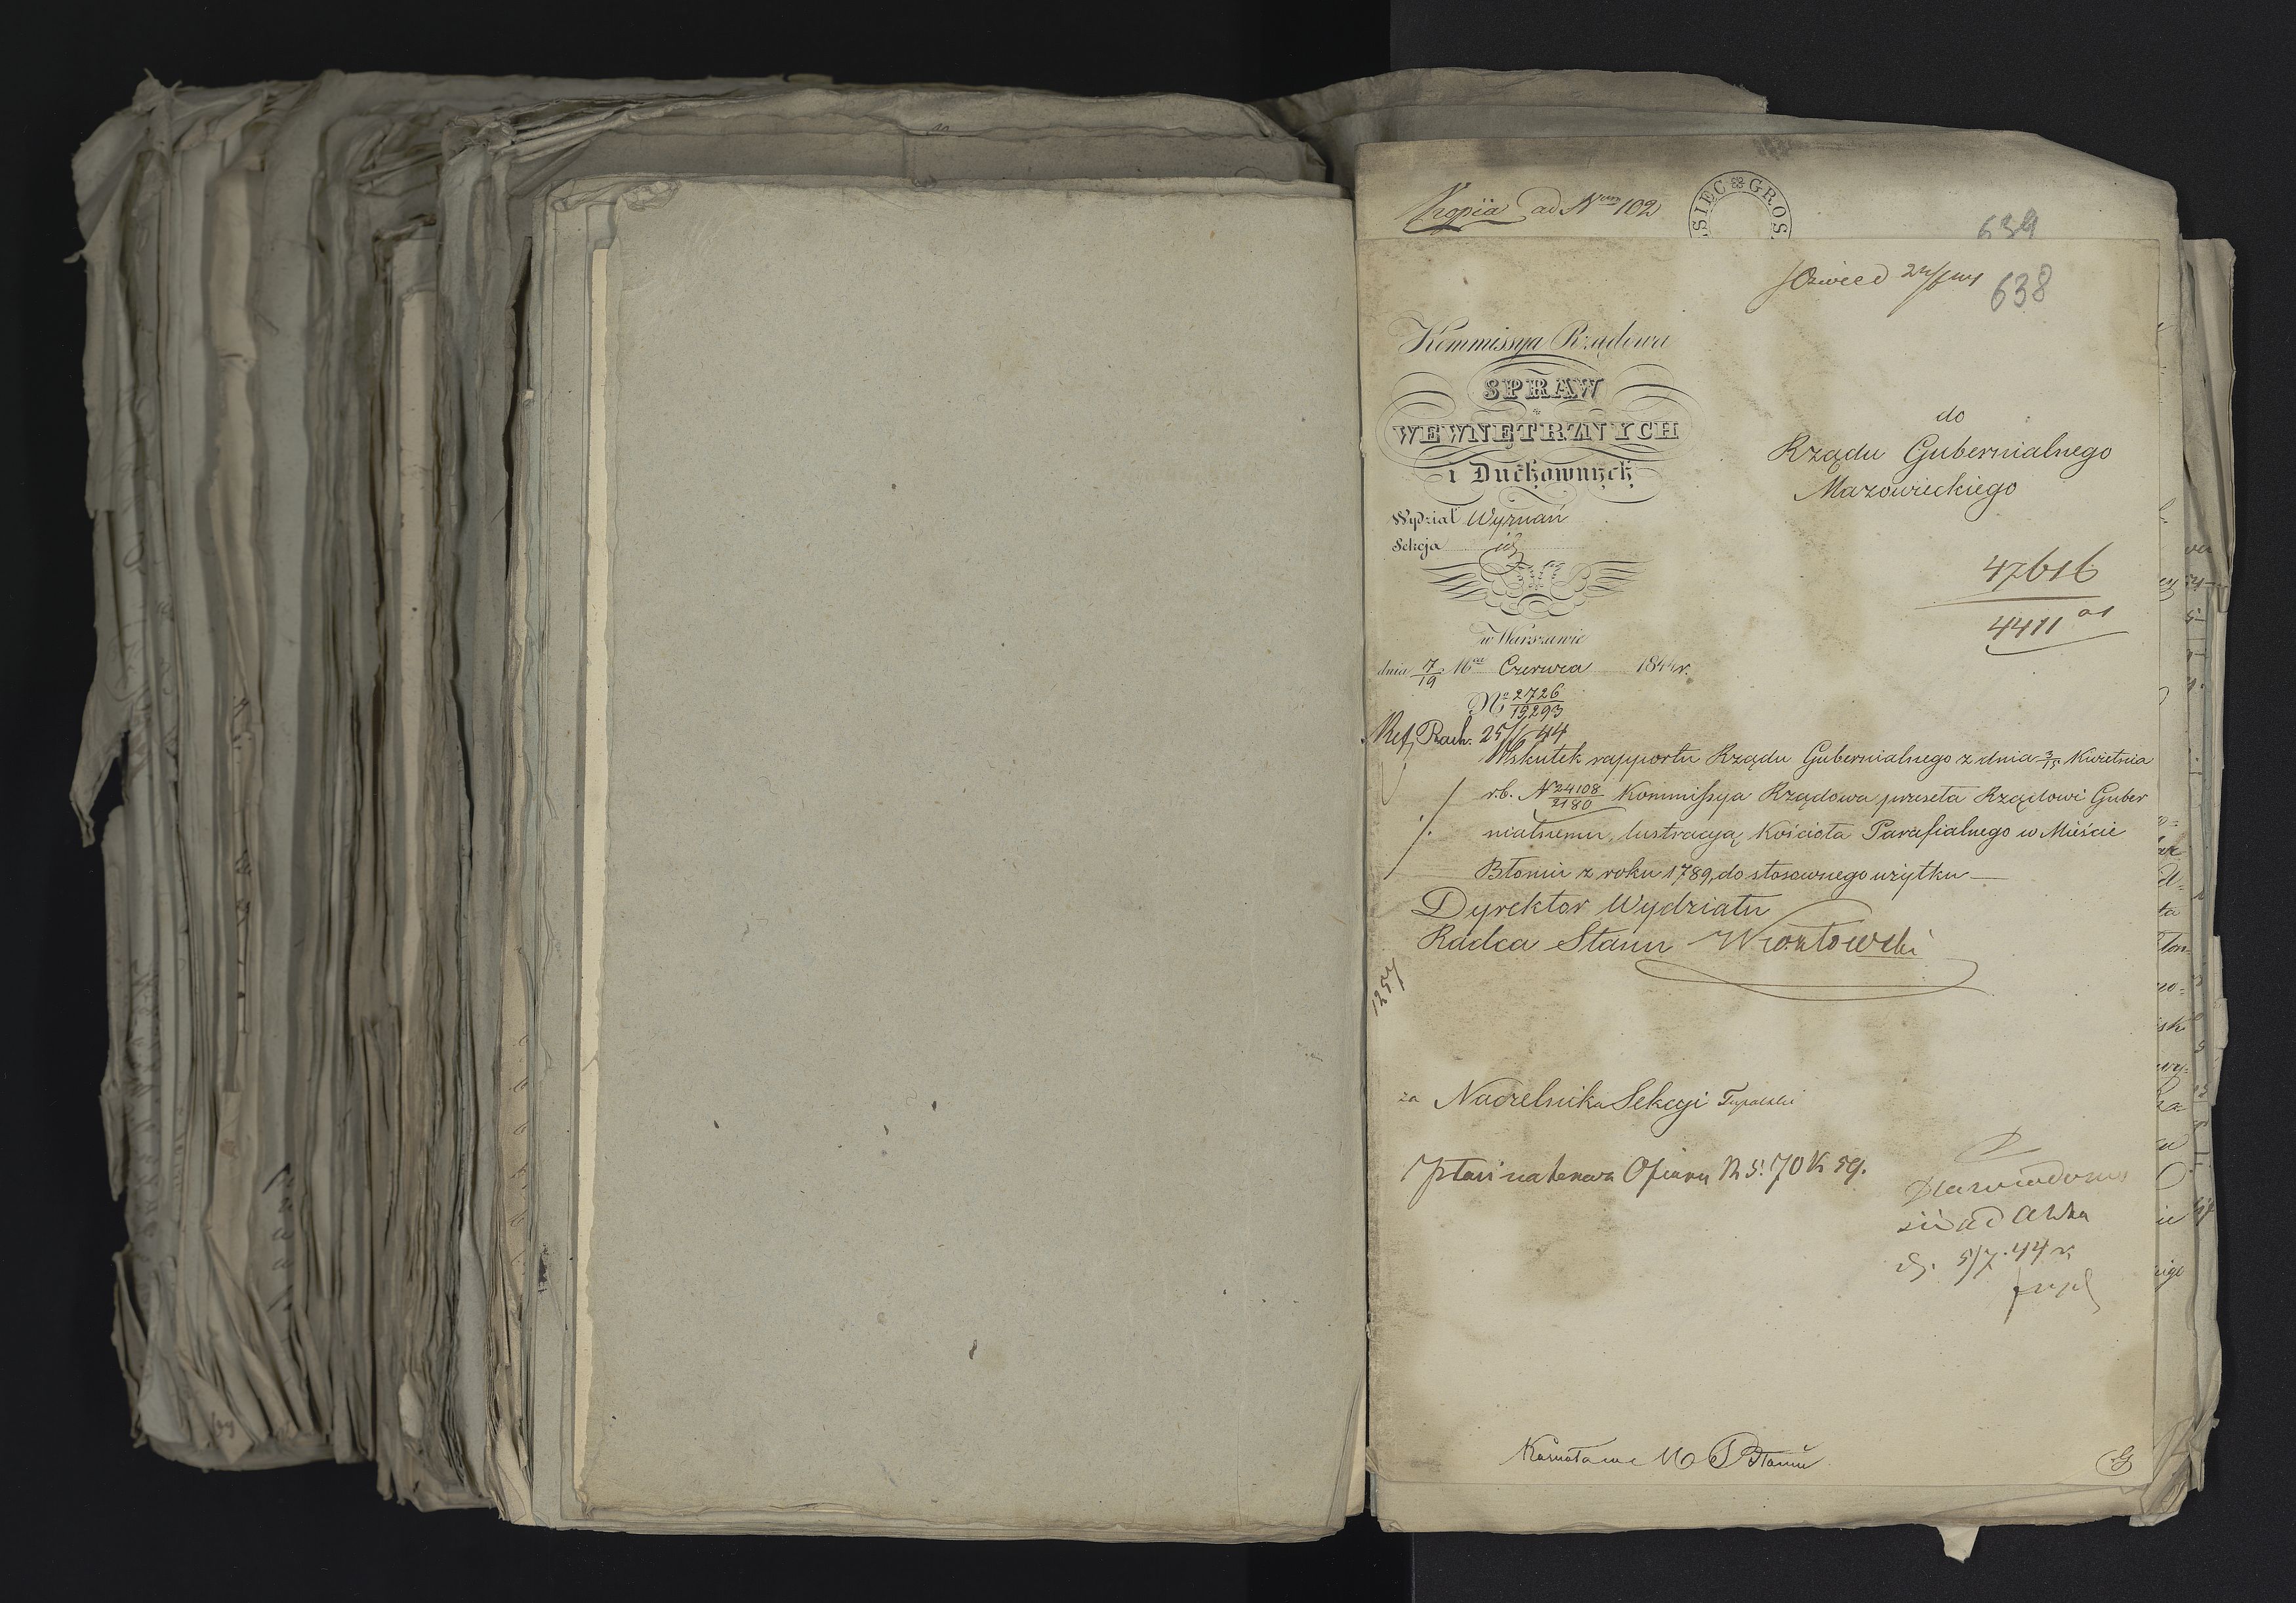 Kopia ad Nrum 102
SIEC GROS
639
638
Kommissya Rządowa
SPRAW
WEWNĘTRZNYCH
i Duchownych
Wydział Wyznań
Sekcja
w Warszawie
dnia 7/19 Czerwca 1844 r.
Nr 2726/15293
do
Rządu Gubernialnego
Mazowieckiego
47616
4411
Ref. Rach. 25/6 44
Wskutek rapportu Rządu Gubernialnego z dnia 3/15 Kwietnia
r.b. N 24108/2180 Kommissya Rządowa przeseła Rządowi Guber
nialnemu, lustracyą Kościoła Parafialnego w Mieście
Błoniu z roku 1789, do stosownego użytku —
Dyrektor Wydziału
Radca Stanu
za Naczelnika Sekcyi
Ofiary R S. 70 K 59.
ad acta
d. 5/7. 44 r.
Błoniu